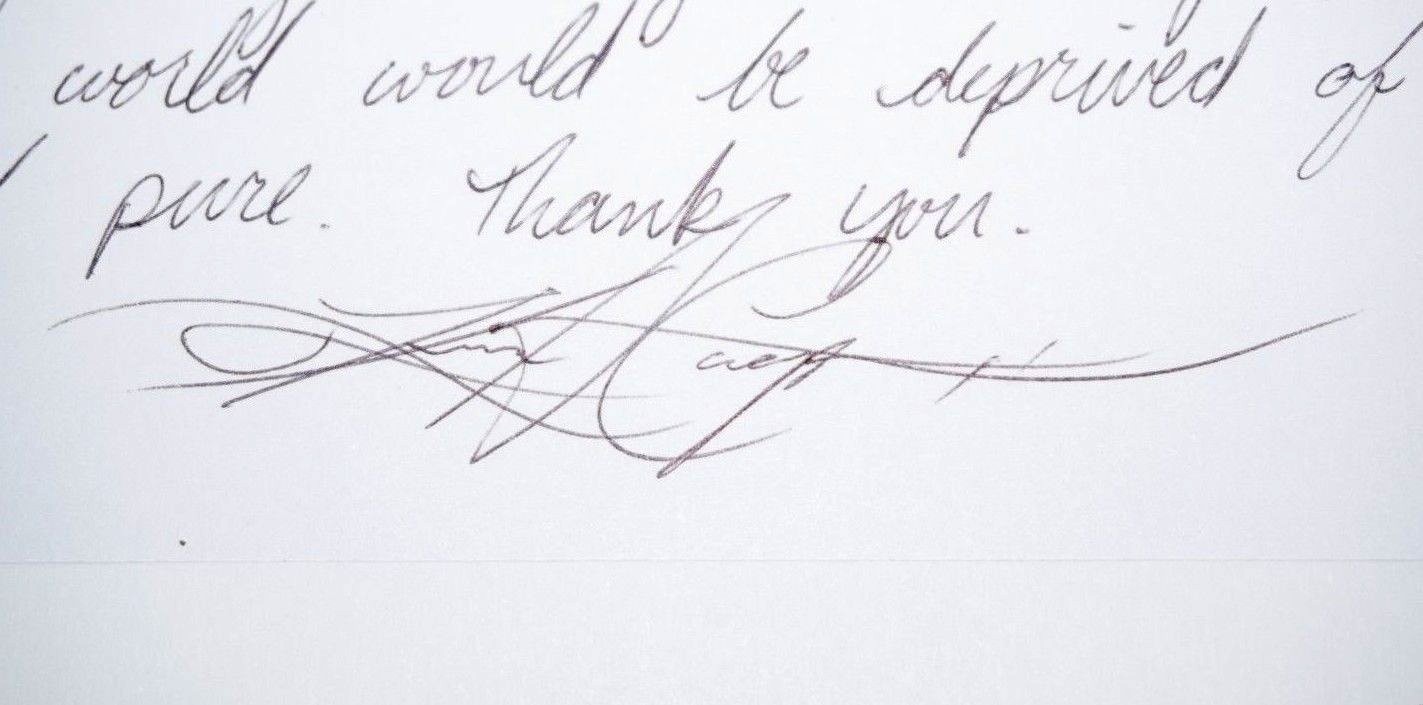 world would be deprived of
pure. Thank you.